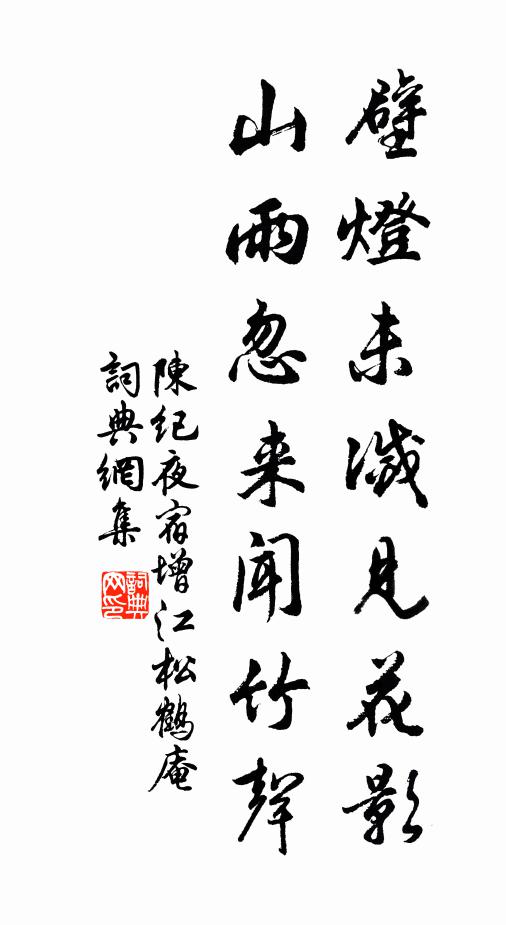 壁燈未滅見花影
山雨忽来聞竹聲
陳紀夜宿增江松鶴庵
詞典網集
詞典网印